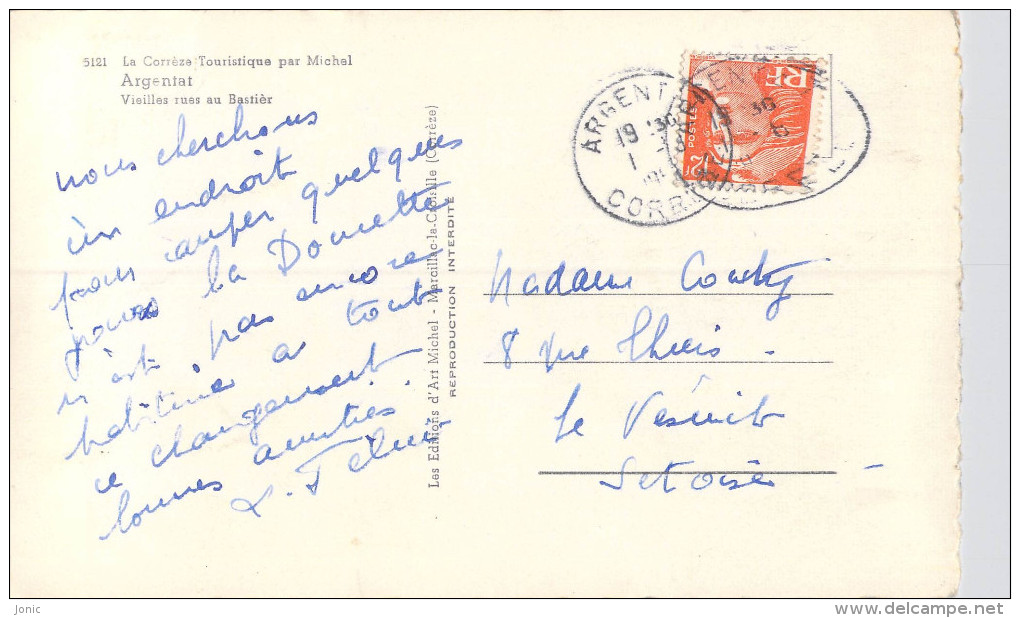 5121 La Corrèze Touristique par Michel
Argentat
Vieilles rues au Bastièr
nous cherchons
un endroit
pour camper quelques
jours la
n'est pas encore
habituée à tout
ce changement
bonnes amitiés.
Les Editions d'Art Michel - Marcillac-la-Croisille (Corrèze)
REPRODUCTION INTERDITE
ARGENTAT
19 30
1
CORRÈZE
RF
POSTES
12F
Madame
8 rue Thiers
Le Vésinet
Set Oise
Jonic
www.delcampe.net